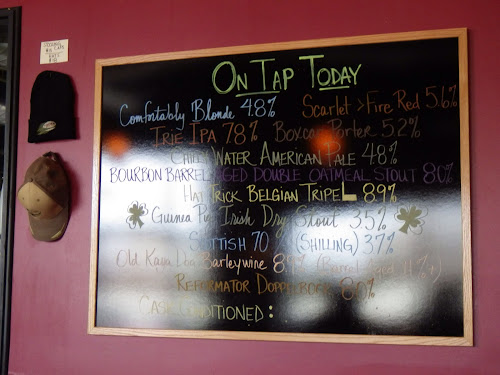 On Tap Today
Comfortably Blonde 4.8% Scarlet > Fire Red 5.6%
Trie IPA 7.8% Boxcar Porter 5.2%
Chilly Water American Pale 4.8%
Bourbon Barrel Aged Double Oatmeal Stout 8.0%
Hat Trick Belgian Tripel 8.9%
Guinea Pig Irish Dry Stout 3.5%
Scottish 70 (Shilling) 3.7%
Old Kaya Dba Barleywine 8.9% (Barrel Aged
Reformator Doppelbock 8.0%
Cask Conditioned: